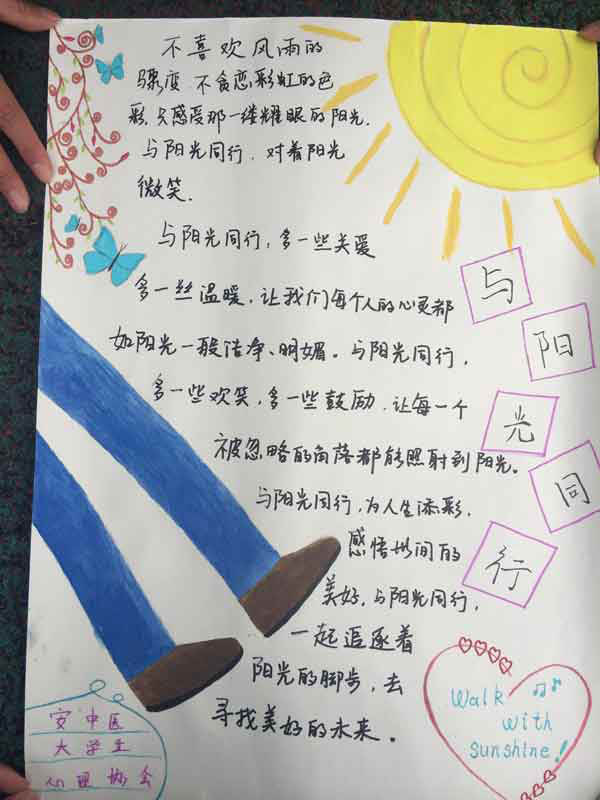 不喜欢风雨的
骤变,不贪恋彩虹的色
彩,只感受那一缕耀眼的阳光.
与阳光同行,对着阳光
微笑.
与阳光同行,多一些关爱
多一丝温暖,让我们每个人的心灵都
如阳光一般洁净、明媚。与阳光同行,
多一些欢笑,多一些鼓励,让每一个
被忽略的角落都能照射到阳光。
与阳光同行,为人生添彩,
感悟世间的
美好,与阳光同行,
一起追逐着
阳光的脚步,去
寻找美好的未来。
与
阳
光
同
行
安中医
大学生
心理协会
Walk
with
sunshine!